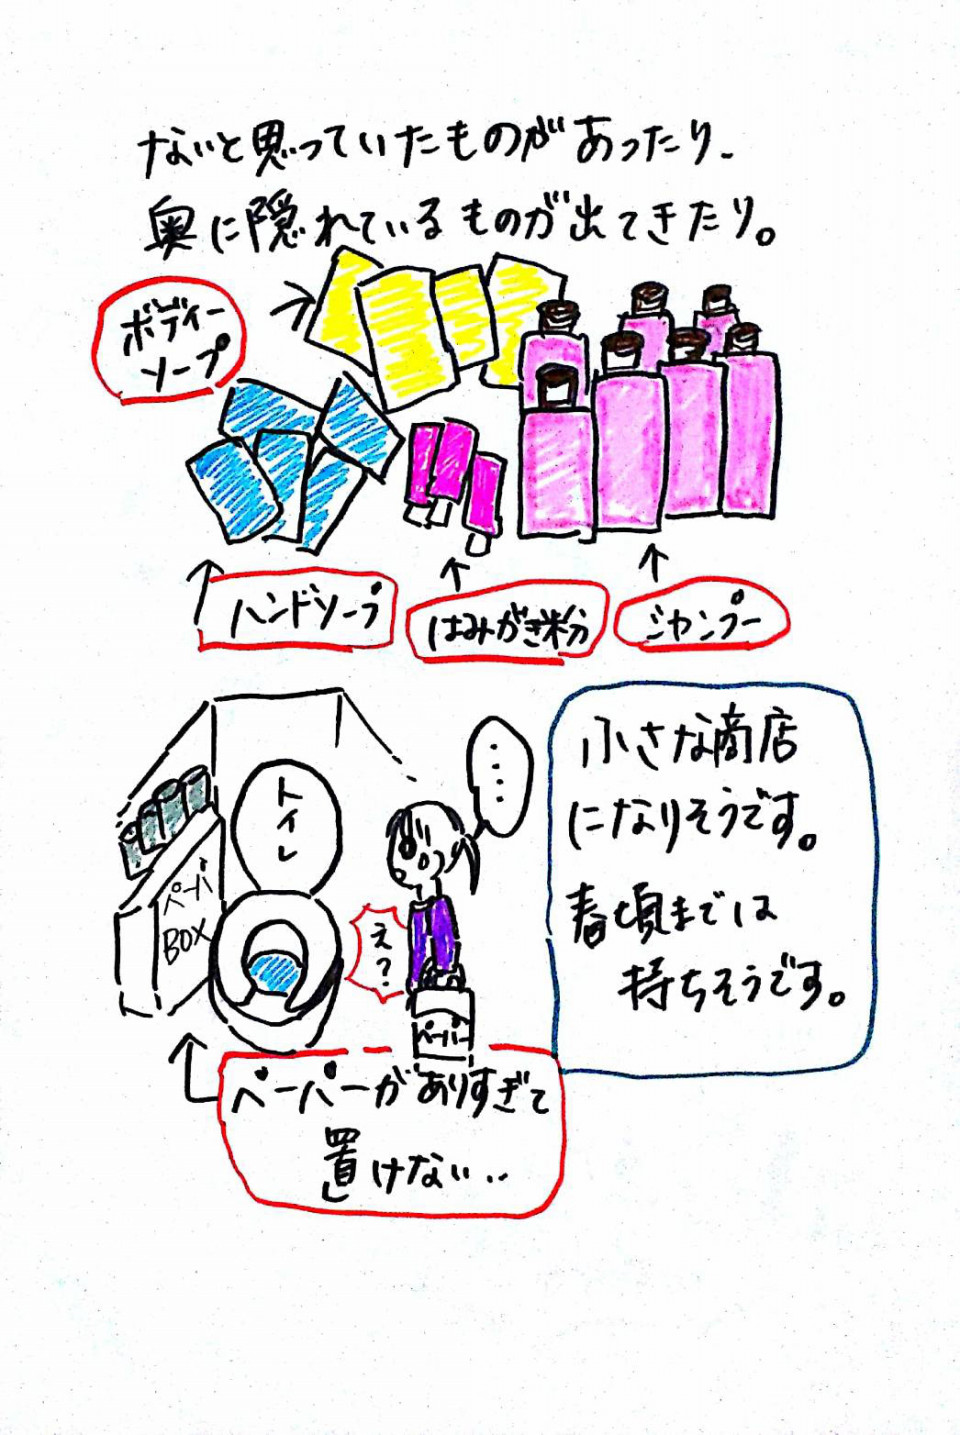 ないと思っていたものがあったり、
奥に隠れているものが出てきたり。
ボディー
ソープ
ハンドソープ
はみがき粉
シャンプー
トイレ
ペーパ
BOX
‥‥
え?
ペーパー
ペーパーがありすぎて
置けない‥
小さな商店
になりそうです。
春頃までは
持ちそうです。